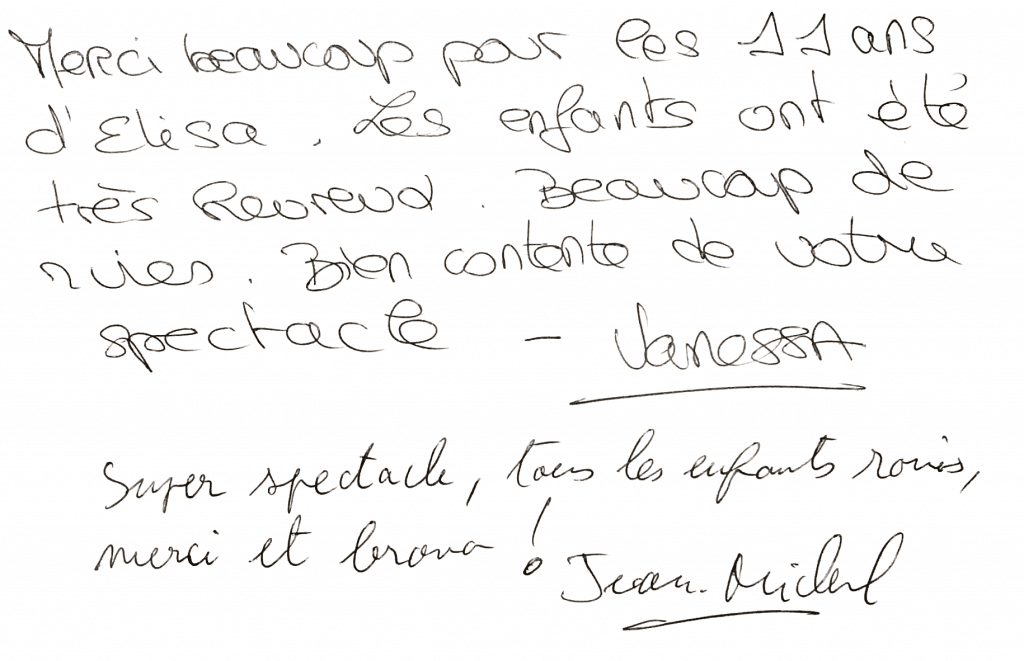 Merci beaucoup pour les 11 ans
d'Elisa. Les enfants ont été
très heureux. Beaucoup de
rires. Bien contente de votre
spectacle - VanessA
Super spectacle, tous les enfants ravis,
merci et bravo !
Jean-Michel